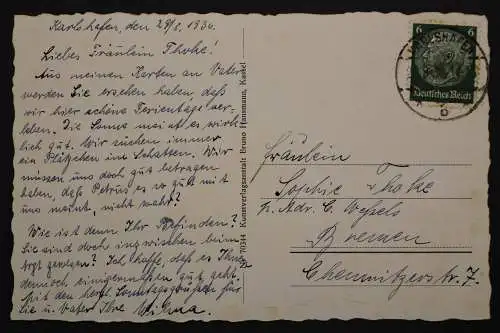 Karlshafen, den 29/8. 1936.
Liebes Fräulein Thoke!
Aus meinen Karten an Vater
werden Sie ersehen haben, daß
wir hier schöne Ferientage ver-
leben. Die Sonne meint es wirk-
lich gut. Wir suchen immer
ein Plätzchen im Schatten. Wir
müssen uns doch gut betragen
haben, daß Petrus es so gut mit
uns meint, nicht wahr?
Wie ist denn Ihr Befinden?
Sie sind doch inzwischen beim
Arzt gewesen? Ich hoffe, daß es Ihnen
dennoch einigermaßen gut geht.
Mit den herzl. Sonntagsgrüßen für
Sie u. Vater Ihre
7034 Kunstverlagsanstalt Bruno Hansmann, Kassel
6 6
Deutsches Reich
Fräulein
Sophie Thoke
p. Adr. C. Wessels
Bremen
Chemnitzerstr. 7.